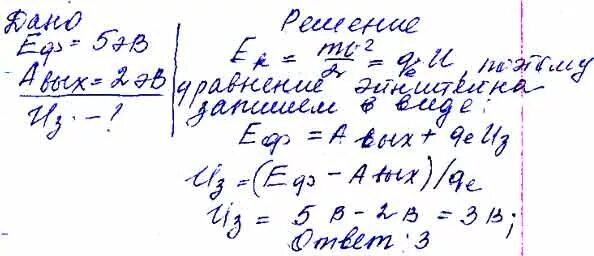 Дано
Eф = 5эВ
Aвых = 2эВ
Uз - ?
Решение
Eк = mv²/2 = qe U поэтому
уравнение эйнштейна
запишем в виде:
Eф = Aвых + qe Uз
Uз = (Eф - Aвых)/qe
Uз = 5В - 2В = 3В;
Ответ: 3